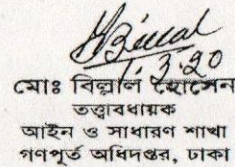 Billal
1.3.20
মোঃ বিল্লাল হোসেন
তত্ত্বাবধায়ক
আইন ও সাধারণ শাখা
গণপূর্ত অধিদপ্তর, ঢাকা